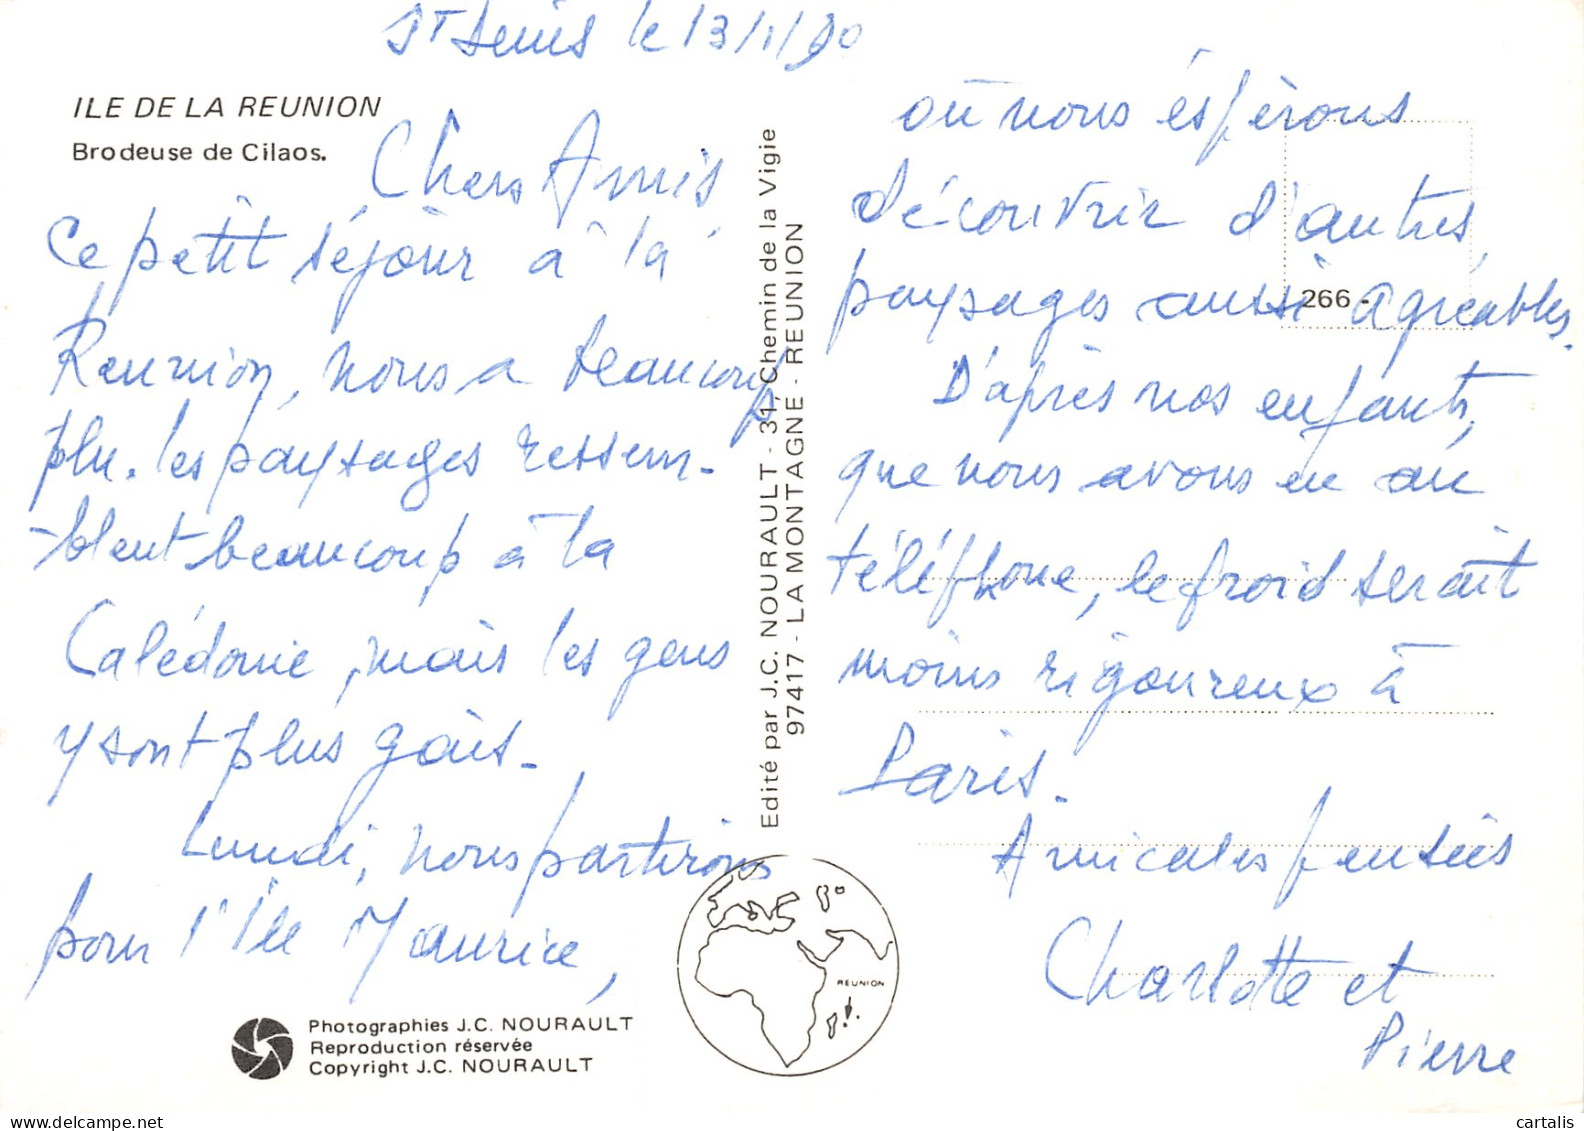 St Denis le 13/1/90
ILE DE LA REUNION
Brodeuse de Cilaos.
Chers Amis
Ce petit séjour à la
Réunion, nous a beaucoup
plu. les paysages ressem-
-blent beaucoup à la
Calédonie, mais les gens
y sont plus gais.
Lundi, nous partirons
pour l'Île Maurice,
Photographies J.C. NOURAULT
Reproduction réservée
Copyright J.C. NOURAULT
Edité par J.C. NOURAULT - 31, Chemin de la Vigie
97417 - LA MONTAGNE - REUNION
REUNION
266 -
où nous éspèrons
découvrir d'autres
paysages aussi agréables.
D'après nos enfants,
que nous avons eu au
téléphone, le froid serait
moins rigoureux à
Paris.
Amicales pensées
Charlotte et
Pierre
cartalis
www.delcampe.net